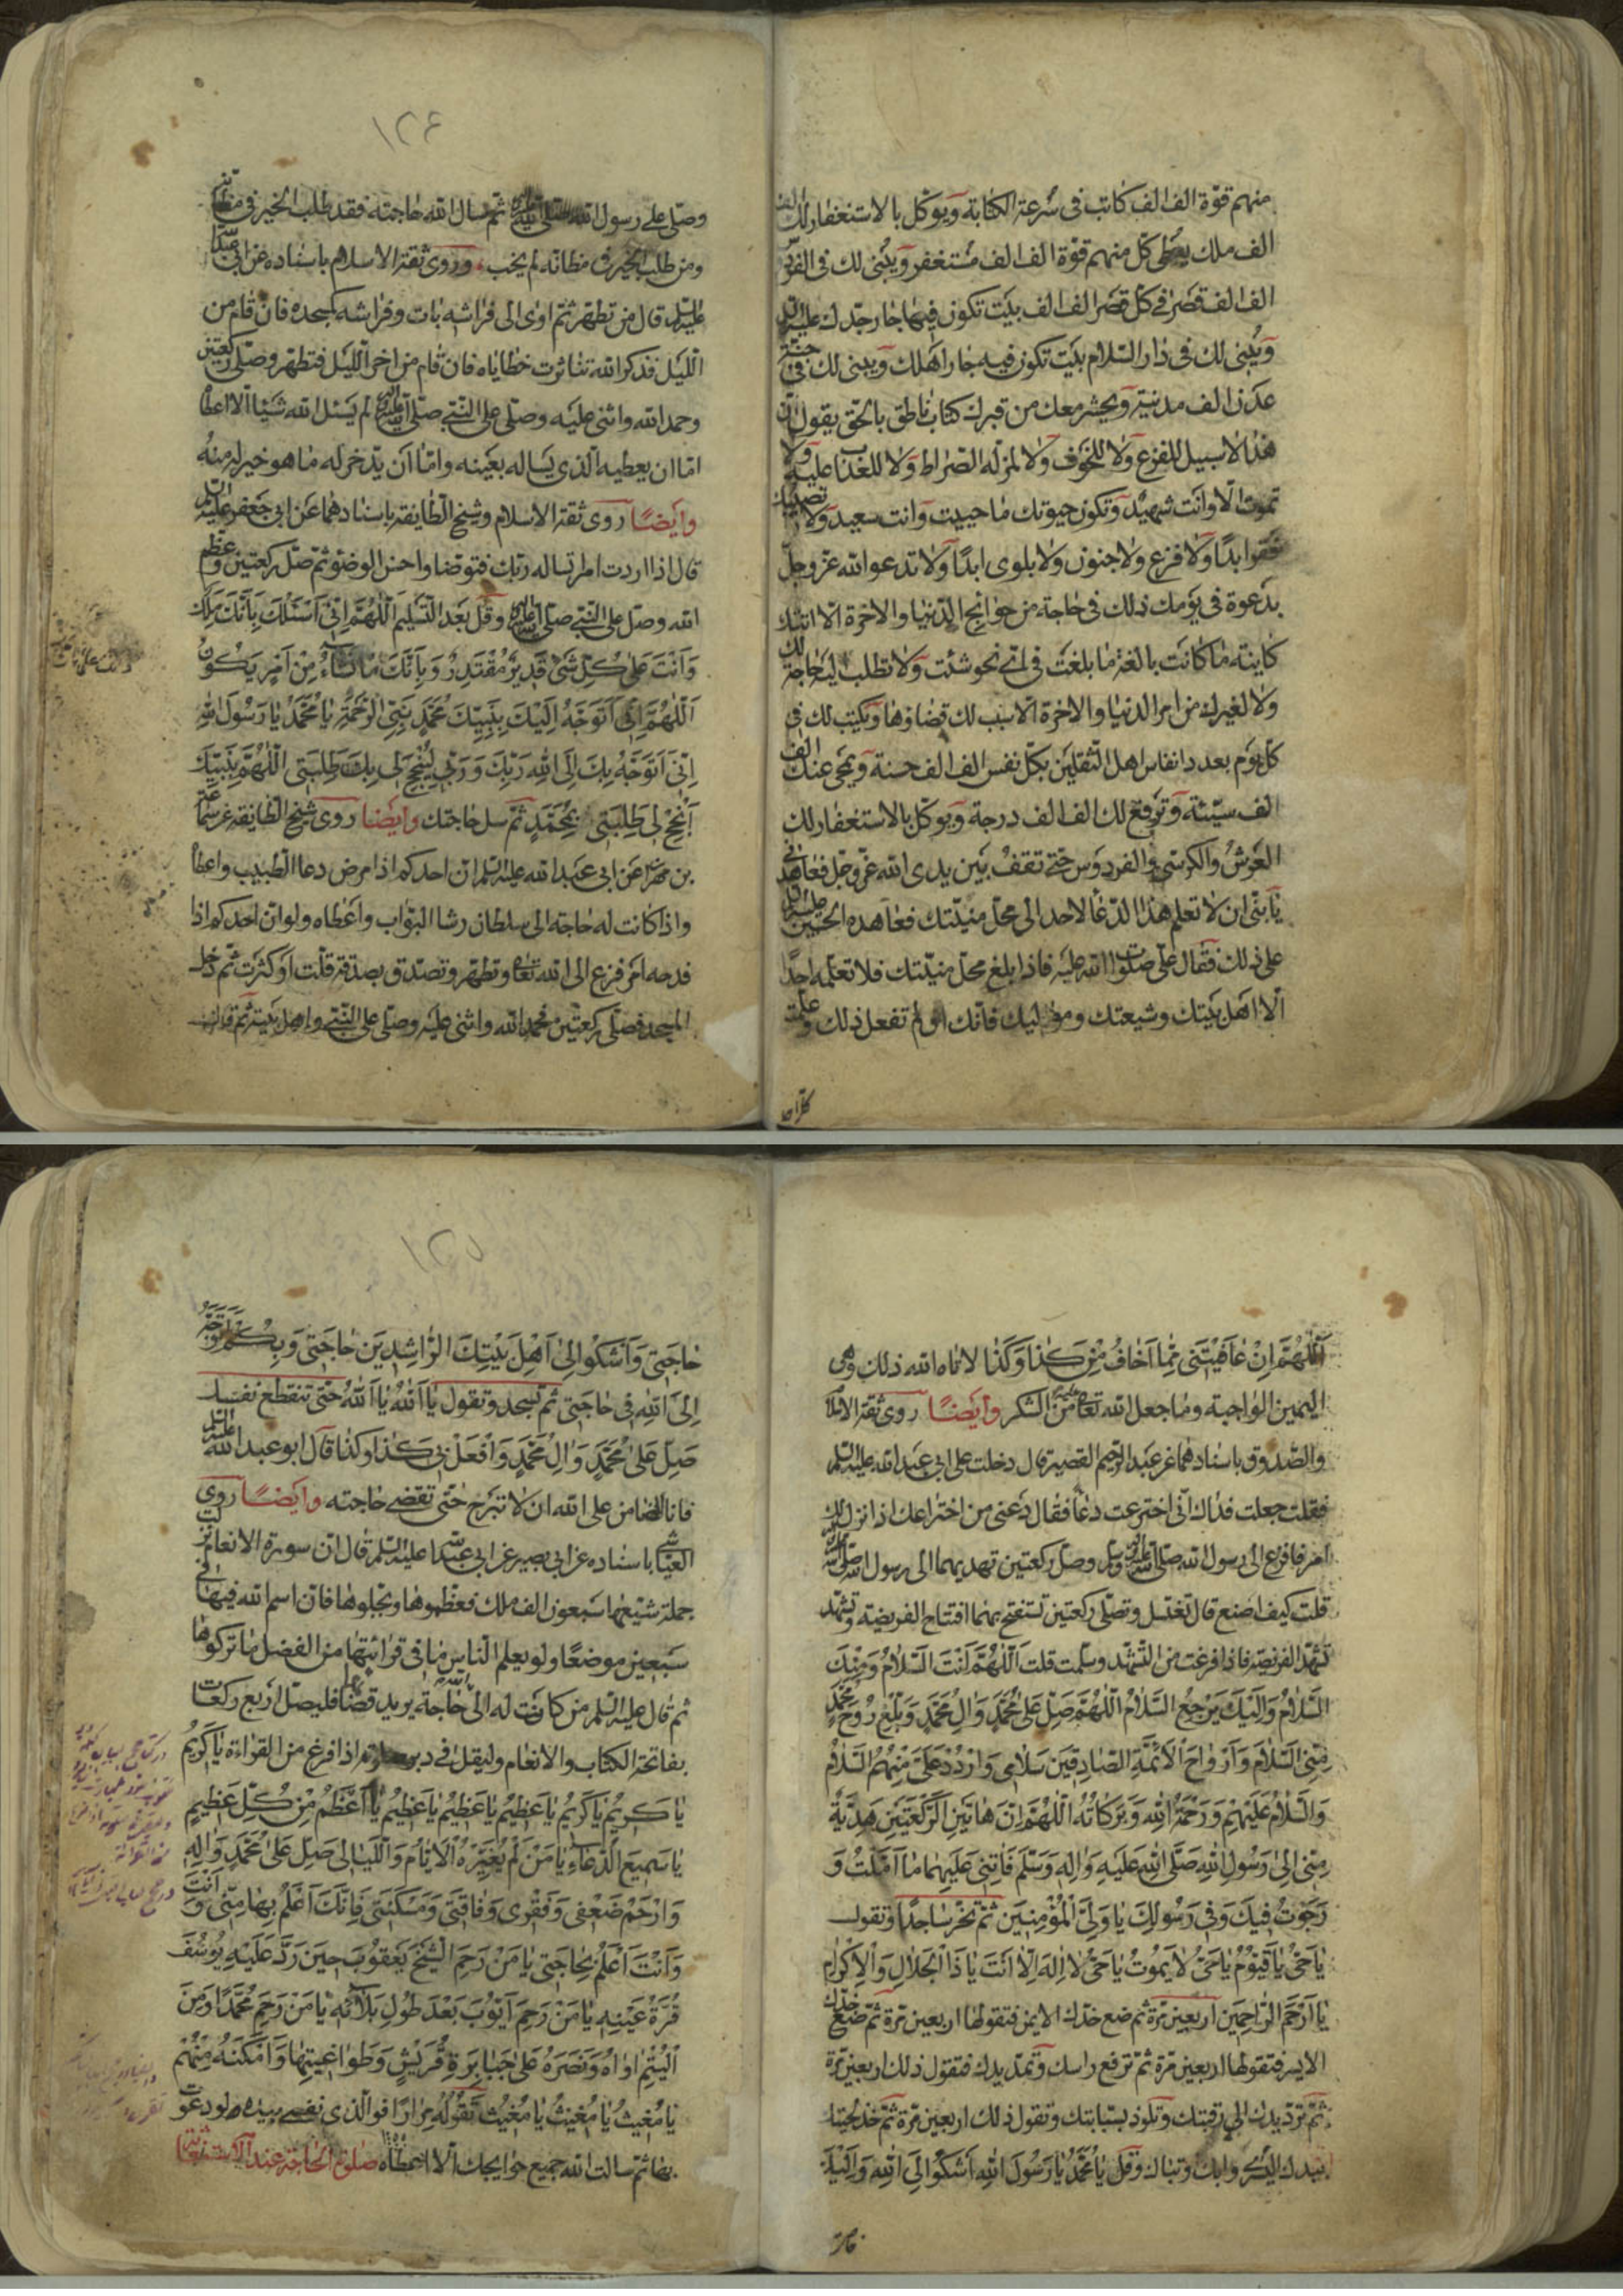 منهم قوّة الف الف كاتب فى سُرعة الكتابة ويوكّل بالاستغفار لك الف
الف ملك يعطى كل منهم قوّة الف الف مستغفر ويُبنى لك فى الفردوس
الف الف قصر فى كل قصر الف الف بيت تكون فيها جار جدّك عليه السلام
ويُبنى لك فى دار السّلام بيت تكون فيه جار اهلك ويبنى لك فى جنّة
عدن الف مدينة ويحشر معك من قبرك كتاب ناطق بالحق يقول انّ
هذا لا سبيل للفزع ولا للخوف ولا لمزلّة الصّراط ولا للعذاب عليه ولا
تموت الّا وانت شهيد وتكون حيوتك ما حييت وانت سعيد ولا تصيبك
فقر ابدًا ولا فزع ولا جنون ولا بلوى ابدًا ولا تدعو الله عزّ وجلّ
بدعوة فى يومك ذلك فى حاجة من حوائج الدّنيا والاخرة الّا اتتك
كاينة ما كانت بالغة ما بلغت فى اىّ نحو شئت ولا تطلب ليه حاجة لك
ولا لغيرك من امر الدنيا والاخرة الّا سبب لك قضاؤها ويكتب لك فى
كل يوم بعدد انفاس اهل الثّقلين بكلّ نفس الف الف حسنة ويمحى عنك الف
الف سيّئة وترفع لك الف الف درجة ويوكّل بالاستغفار لك
العرش والكرسى والفردوس حتى تقف بين يدى الله عزّ وجلّ فعاهدنى
يا بنىّ ان لا تعلم هذا الدّعاء لاحد الى محلّ منيّتك فعاهده الحسين عليه السلام
على ذلك فقال على صلوات الله عليه فاذا بلغ محلّ منيّتك فلا تعلّمه احدًا
الّا اهل بيتك وشيعتك ومواليك فانّك ان لم تفعل ذلك وعلمته
كلّ احد
١٢٤
وصلّى على رسول الله صلى الله عليه وآله ثم سال الله حاجته فقد طلب الخير فى مظانّه
ومن طلب الخير فى مظانّه لم يخب وروى ثقة الاسلام باسناده عن ابى عبد الله
عليه السلام قال من تطهّر ثمّ اوى الى فراشه بات وفراشه كمسجده فان قام من
اللّيل فذكر الله تناثرت خطاياه فان قام من اخر اللّيل فتطهّر وصلّى ركعتين
وحمد الله واثنى عليه وصلّى على النّبى صلّى الله عليه وآله لم يسئل الله شيئا الّا اعطاه
امّا ان يعطيه الّذى يساله بعينه وامّا ان يدّخر له ما هو خير له منه
وايضًا روى ثقة الاسلام وشيخ الطّايفة باسنادهما عن ابى جعفر عليه السلام
قال اذا اردت امرا تساله ربّك فتوضّا واحسن الوضوء ثمّ صلّ ركعتين وعظّم
الله وصلّ على النّبى صلى الله عليه وآله وقل بعد التّسليم اَللّهُمَّ اِنّى اَسْئَلُكَ بِاَنَّكَ مَلِكٌ
وَاَنْتَ عَلى كُلِّ شَىْءٍ قَديرٌ مُقْتَدِرٌ وَبِاَنَّكَ مَا تَشَاءُ مِنْ اَمْرٍ يَكُونُ
اَللّهُمَّ اِنّى اَتَوَجَّهُ اِلَيْكَ بِنَبِيِّكَ مُحَمَّدٍ نَبِىِّ الرَّحْمَةِ يَا مُحَمَّدُ يَا رَسُولَ اللهِ
اِنّى اَتَوَجَّهُ بِكَ اِلَى اللهِ رَبِّكَ وَرَبّى لِيُنْجِحَ لى بِكَ طَلِبَتى اَللّهُمَّ بِنَبِيِّكَ
اَنْجِحْ لى طَلِبَتى بِمُحَمَّدٍ ثمّ سل حاجتك وايضا روى شيخ الطّايفة عن سماعة
بن مهران عن ابى عبد الله عليه السلام ان احدكم اذا مرض دعا الطّبيب واعطاه
واذا كانت له حاجة الى سلطان رشا البوّاب واعطاه ولو انّ احدكم اذا
فدحه امر فزع الى الله تعالى وتطهّر وتصدّق بصدقة قلّت او كثرت ثمّ دخل
المسجد فصلّى ركعتين فحمد الله واثنى عليه وصلّى على النّبى واهل بيته ثم قال
اَللّهُمَّ اِنْ عَافَيْتَنى مِمّا اَخَافُ مِنْ كَذا وَكَذا لاتاه الله ذلك وهى
اليمين الواجبة وما جعل الله تعالى عليه من الشكر وايضًا روى ثقة الاسلام
والصّدوق باسنادهما عن عبد الرّحيم القصير قال دخلت على ابى عبد الله عليه السلام
فقلت جعلت فداك انّى اخترعت دعاءً فقال دعنى من اختراعك اذا نزل بك
امر فافزع الى رسول الله صلى الله عليه وآله وسلم وصلّ ركعتين تهديهما الى رسول الله صلى الله عليه وآله
قلت كيف اصنع قال تغتسل وتصلّى ركعتين تستفتح بهما افتتاح الفريضة وتشهّد
تشهّد الفريضة فاذا فرغت من التّشهّد وسلّمت قلت اَللّهُمَّ اَنْتَ السَّلامُ وَمِنْكَ
السَّلامُ وَاِلَيْكَ يَرْجِعُ السَّلامُ اَللّهُمَّ صَلِّ عَلى مُحَمَّدٍ وَالِ مُحَمَّدٍ وَبَلِّغْ رُوحَ مُحَمَّدٍ
مِنِّى السَّلامَ وَاَرْوَاحَ الاَئِمَّةِ الصّادِقينَ سَلامى وَارْدُدْ عَلَىَّ مِنْهُمُ السَّلامَ
وَالسَّلامُ عَلَيْهِمْ وَرَحْمَةُ اللهِ وَبَرَكَاتُهُ اَللّهُمَّ اِنَّ هَاتَيْنِ الرَّكْعَتَيْنِ هَدِيَّةٌ
مِنّى اِلى رَسُولِ اللهِ صَلَّى اللهُ عَلَيْهِ وَالِهِ وَسَلَّمَ فَاَثِبْنى عَلَيْهِما مَا اَمَّلْتُ وَ
رَجَوْتُ فيكَ وَفى رَسُولِكَ يَا وَلِىَّ الْمُؤْمِنينَ ثمّ تخرّ ساجدًا وتقول
يَا حَىُّ يَا قَيُّومُ يَا حَىُّ لا يَمُوتُ يَا حَىُّ لا اِلهَ اِلّا اَنْتَ يَا ذَا الْجَلالِ وَالاِكْرَامِ
يَا اَرْحَمَ الرَّاحِمينَ اربعين مرّة ثم ضع خدّك الايمن فتقولها اربعين مرّة ثمّ ضع خدّك
الايسر فتقولها اربعين مرّة ثمّ ترفع راسك وتمدّ يدك فتقول ذلك اربعين مرّة
ثمّ تردّ يدك الى رقبتك وتلوذ بسبّابتك وتقول ذلك اربعين مرّة ثمّ خذ لحيتك
بيدك اليسرى وابك وتباك وقل يَا مُحَمَّدُ يَا رَسُولَ اللهِ اَشْكُوا اِلَى اللهِ وَاِلَيْكَ
١٢٥
حَاجَتى وَاَشْكُوا اِلى اَهْلِ بَيْتِكَ الرّاشِدينَ حَاجَتى وَبِكُمْ اَتَوَجَّهُ
اِلَى اللهِ فى حَاجَتى ثمّ تسجد وتقول يَا اَللهُ يَا اَللهُ حتّى تنقطع نفسك
صَلِّ عَلى مُحَمَّدٍ وَالِ مُحَمَّدٍ وَافْعَلْ بى كَذا وكذا قال ابو عبد الله عليه السلام
فانا الضامن على الله ان لا تبرح حتّى تقضى حاجته وايضًا روى
العيّاشى باسناده عن ابى بصير عن ابى عبد الله عليه السلام قال ان سورة الانعام نزلت
جملة شيّعها سبعون الف ملك فعظّموها وبجّلوها فان اسم الله فيها فى
سبعين موضعًا ولو يعلم النّاس ما فى قرائتها من الفضل ما تركوها
ثم قال عليه السلام من كانت له الى الله حاجة يريد قضاها فليصلّ اربع ركعات
بفاتحة الكتاب والانعام وليقل فى دبر صلوته اذا فرغ من القراءة يَا كَريمُ
يَا كَريمُ يَا كَريمُ يَا عَظيمُ يَا عَظيمُ يَا عَظيمُ يَا اَعْظَمُ مِنْ كُلِّ عَظيمٍ
يَا سَميعَ الدُّعَاءِ يَا مَنْ لَمْ يُغَيِّرْهُ الاَيّامُ وَاللَّيَالى صَلِّ عَلى مُحَمَّدٍ وَالِهِ
وَارْحَمْ ضَعْفى وَفَقْرى وَفَاقَتى وَمَسْكَنَتى فَاِنَّكَ اَعْلَمُ بِها مِنّى وَاَنْتَ
وَاَنْتَ اَعْلَمُ بِحَاجَتى يَا مَنْ رَحِمَ الشَّيْخَ يَعْقُوبَ حينَ رَدَّ عَلَيْهِ يُوسُفَ
قُرَّةَ عَيْنِهِ يَا مَنْ رَحِمَ اَيُّوبَ بَعْدَ طُولِ بَلائِهِ يَا مَنْ رَحِمَ مُحَمَّدًا وَمِنَ
الْيُتْمِ اوَاهُ وَنَصَرَهُ عَلى جَبَابِرَةِ قُرَيْشٍ وَطَوَاغيتِها وَاَمْكَنَهُ مِنْهُمْ
يَا مُغيثُ يَا مُغيثُ يَا مُغيثُ تَقُولُهُ مِرَارًا فو الّذى نفسى بيده لو دعوت
بها ثم سالت الله جميع حوايجك الّا اعطاه صلوة الحاجة عند الاستغاثة